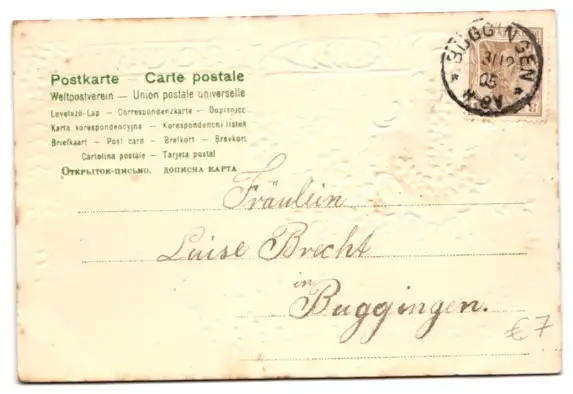 BUGGINGEN
31/12
05
Postkarte — Carte postale
Weltpostverein — Union postale universelle
Levelező-Lap — Correspondenzkarte — Dopisnice
Karta korespondencyjna — Korespondenční lístek
Briefkaart — Post card — Brefkort — Brevkort
Cartolina postale — Tarjeta postal
Открытое-письмо. дописна карта
Fräulein
Luise Brecht
in
Buggingen.
€7